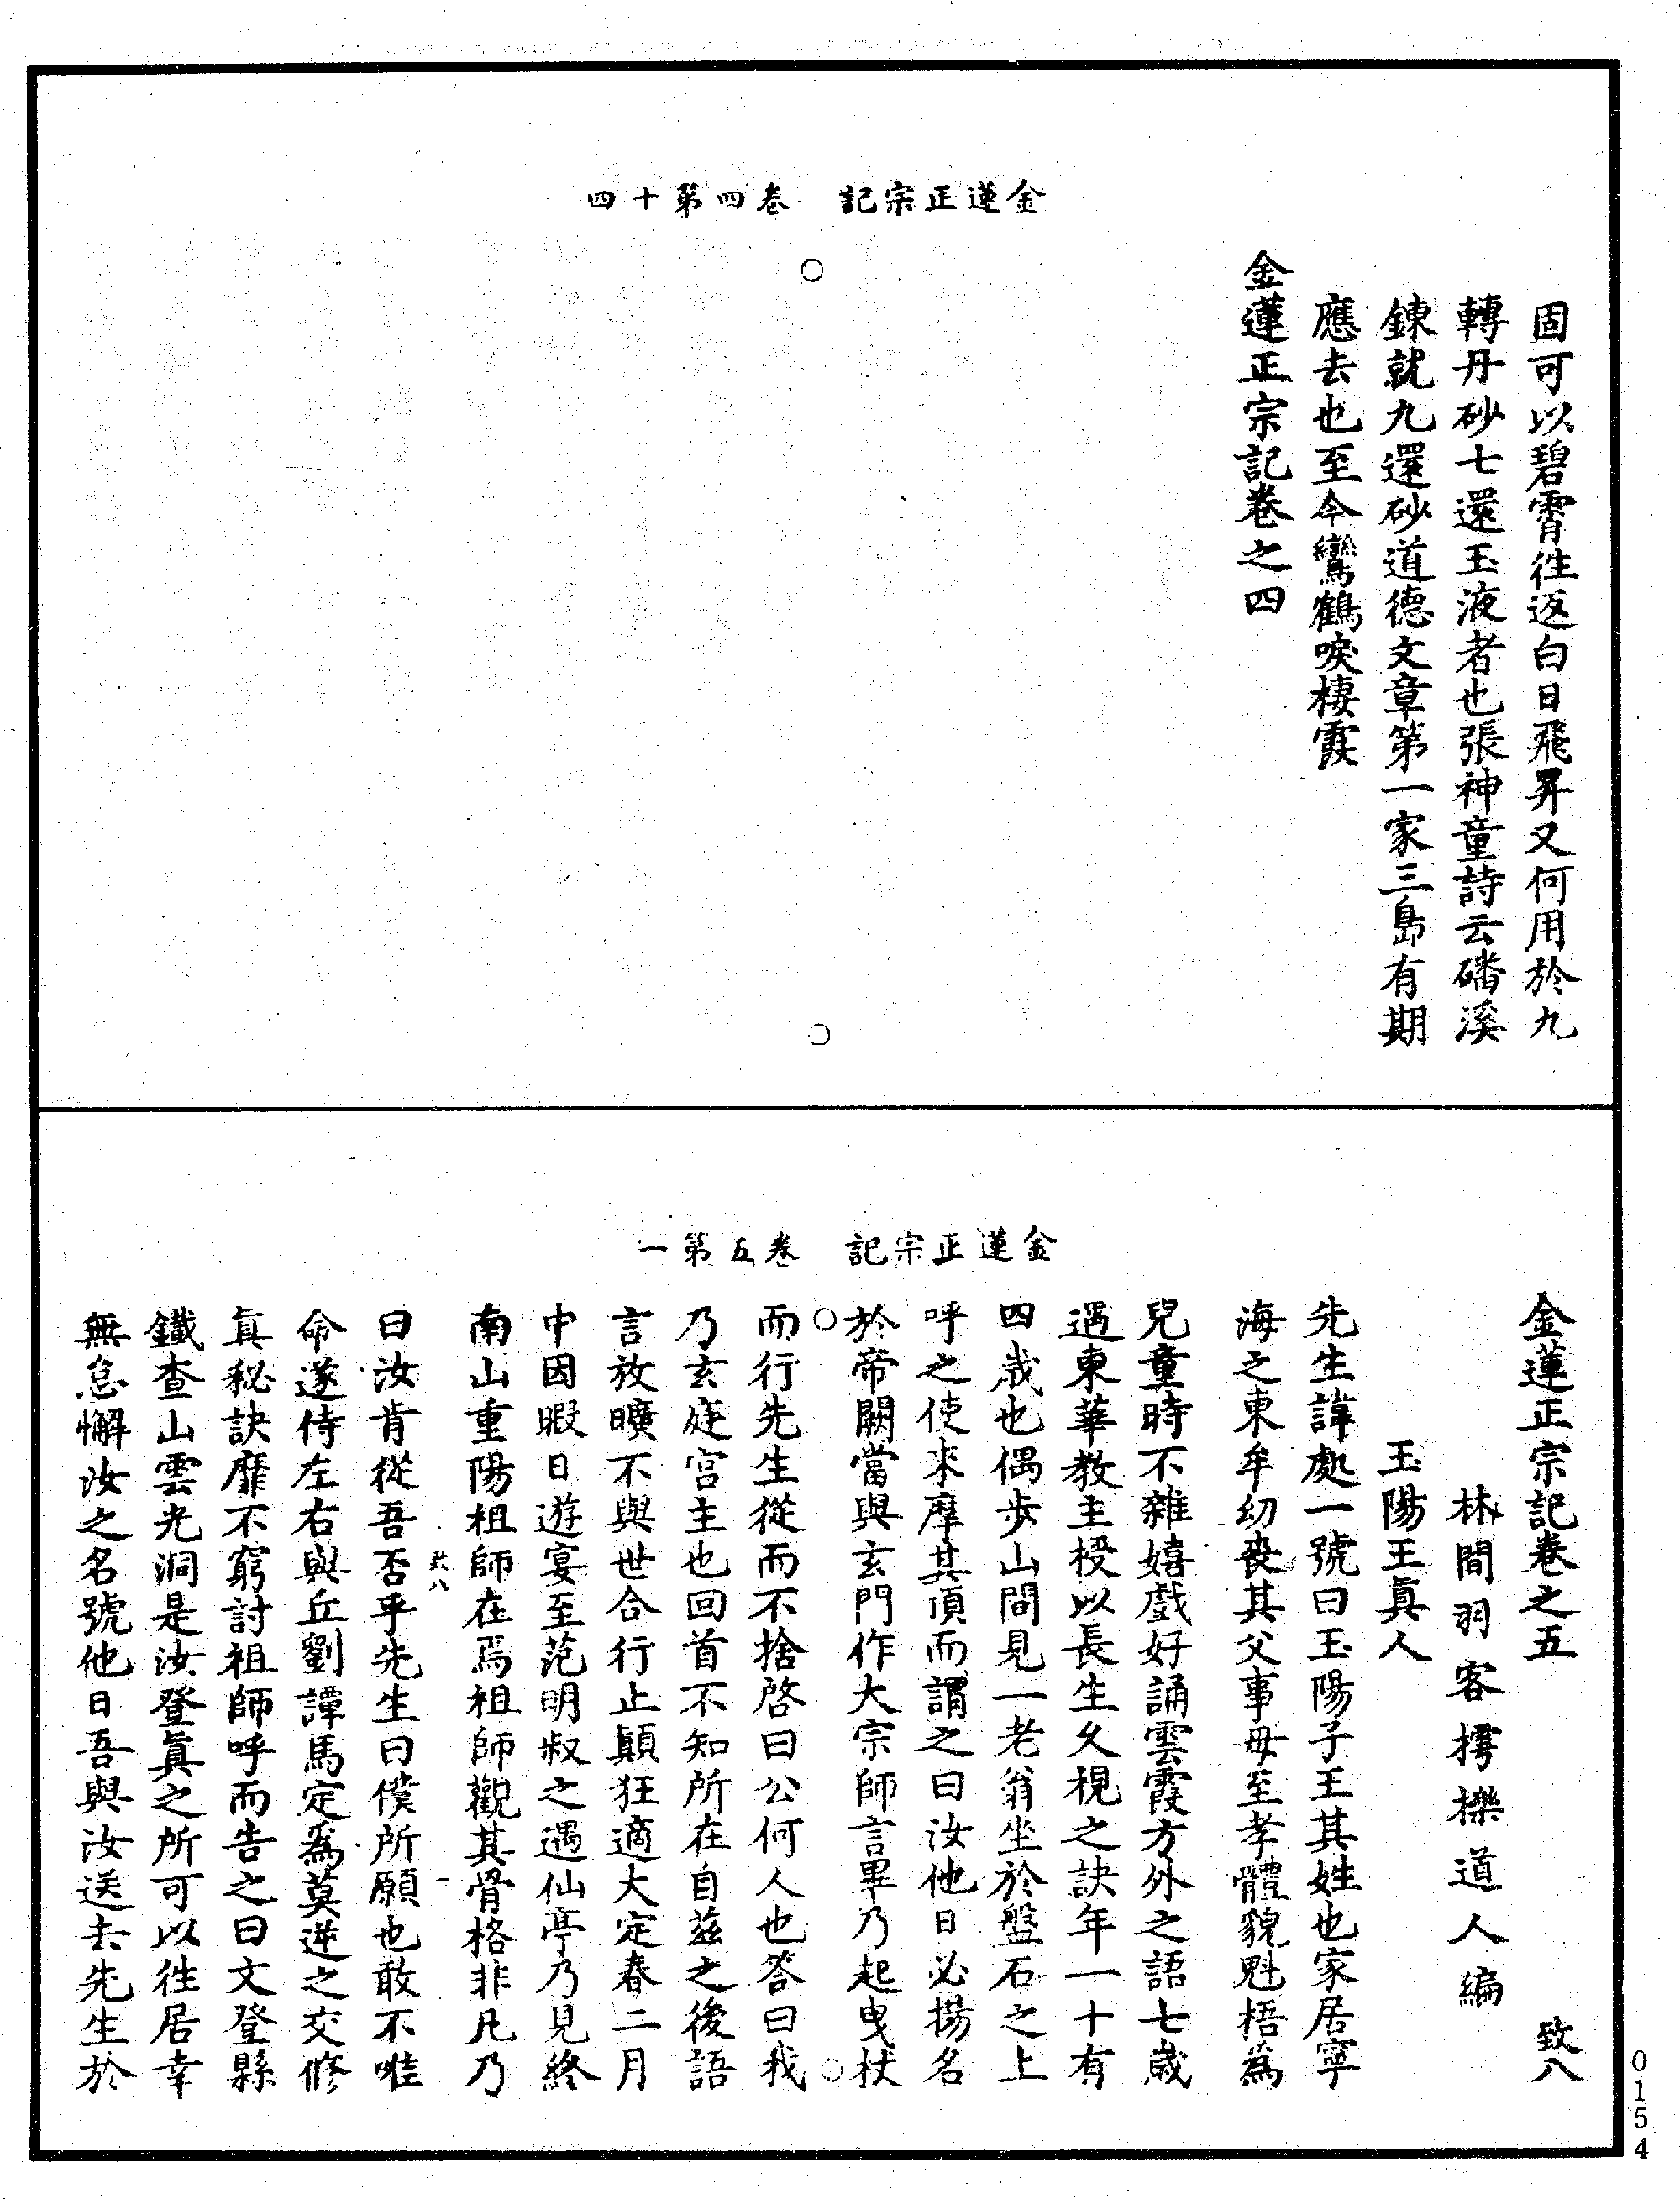 金蓮正宗記　卷四第十四
固可以碧霄往返白日飛昇又何用於九
轉丹砂七還玉液者也張神童詩云磻溪
鍊就九還砂道德文章第一家三島有期
應去也至今鸞鶴唳棲霞
金蓮正宗記卷之四
金蓮正宗記　卷五第一
金蓮正宗記卷之五　致八
林間羽客樗櫟道人編
玉陽王眞人
先生諱處一號曰玉陽子王其姓也家居寧
海之東牟幼喪其父事母至孝體貌魁梧為
兒童時不雜嬉戲好誦雲霞方外之語七歲
遇東華教主授以長生久視之訣年一十有
四歲也偶步山間見一老翁坐於盤石之上
呼之使來摩其頂而謂之曰汝他日必揚名
於帝闕當與玄門作大宗師言畢乃起曳杖
而行先生從而不捨啓曰公何人也答曰我
乃玄庭宮主也回首不知所在自茲之後語
言放曠不與世合行止顛狂適大定春二月
中因暇日遊宴至范明叔之遇仙亭乃見終
南山重陽祖師在焉祖師觀其骨格非凡乃
曰汝肯從吾否乎先生曰僕所願也敢不唯
命遂侍左右與丘劉譚馬定爲莫逆之交修
眞秘訣靡不窮討祖師呼而告之曰文登縣
鐵查山雲光洞是汝登眞之所可以往居幸
無怠懈汝之名號他日吾與汝送去先生於
0154